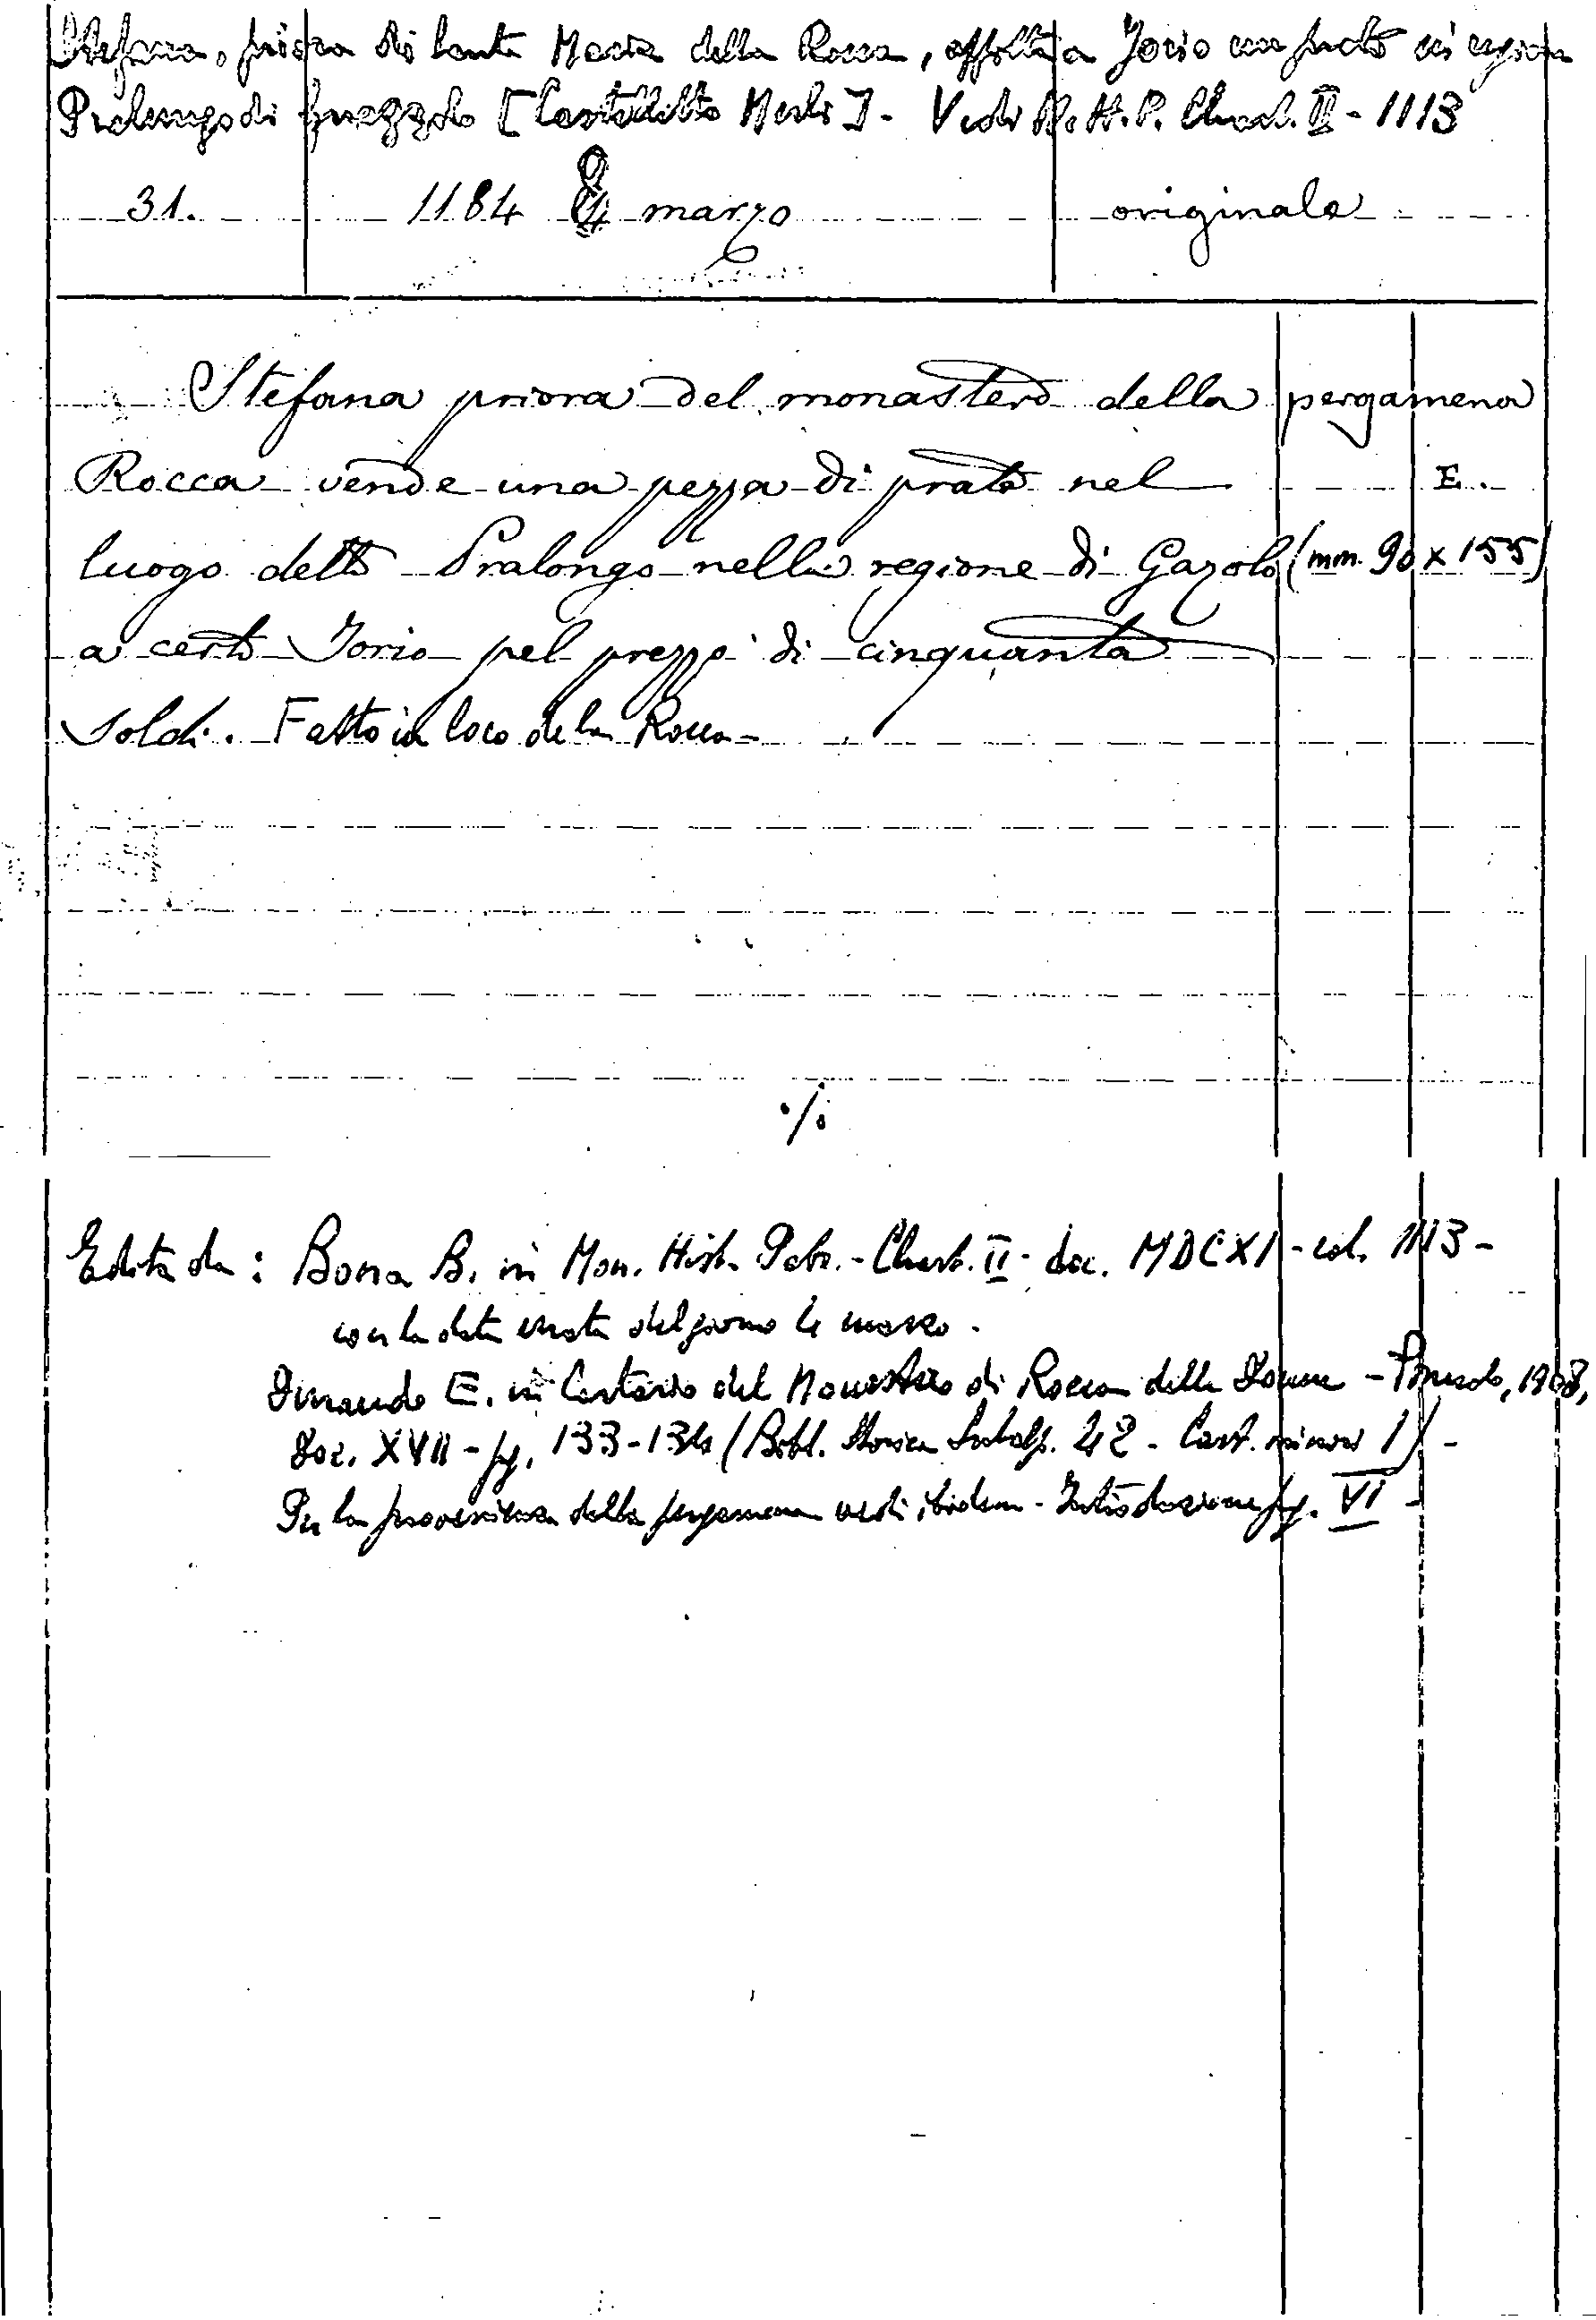 Stefana, priora di Santa Maria della Rocca, affitta a Jorio un prato in regione
Pralungo di Guazzolo [Castelletto Merli]. Vedi M. H. P. Chart. II - 1113
31. 1184 8 marzo originale
Stefana priora del monastero della pergamena
Rocca vende una pezza di prato nel E.
luogo detto Pralongo nella regione di Gazolo (mm. 90 x 155)
a certo Jorio pel prezzo di cinquanta
soldi. Fatto in loco de la Rocca -
./.
Edita da: Bona B. in Mon. Hist. Patr. - Chart. II - doc. MDCXI - col. 1113 -
con la data errata del giorno 4 marzo.
Durando E. in Cartario del Monastero di Rocca delle Donne - Pinerolo, 1908,
Doc. XVII - pg. 133-134 (Bibl. Storica Subalp. 42 - Cart. minori 1) -
Per la provenienza della pergamena vedi ibidem - Introduzione pg. VI -